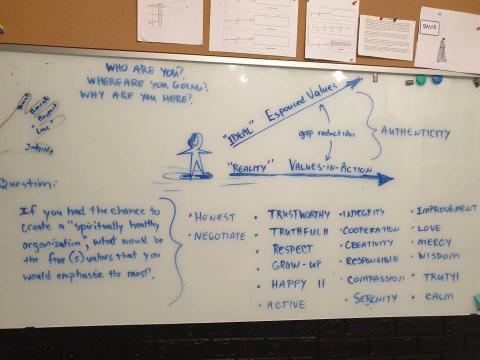 DAVID
WHO ARE YOU?
WHERE ARE YOU GOING?
WHY ARE YOU HERE?
Trust
Social
Respect
"Love"
Integrity
"IDEAL" Espoused Values
gap reduction
AUTHENTICITY
"REALITY" VALUES-IN-ACTION
Question:
If you had the chance to
create a "spiritually healthy
organization", what would be
the five (5) values that you
would emphasize the most?
• HONEST
• NEGOTIATE
• TRUSTWORTHY
• TRUTHFUL II
RESPECT
• GROW-UP
• HAPPY II
• ACTIVE
• INTEGRITY
• COOPERATION
• CREATIVITY
• RESPONSIBLE
• COMPASSION
• SERENITY
• IMPROVEMENT
• LOVE
• MERCY
• WISDOM
• TRUTH
• CALM